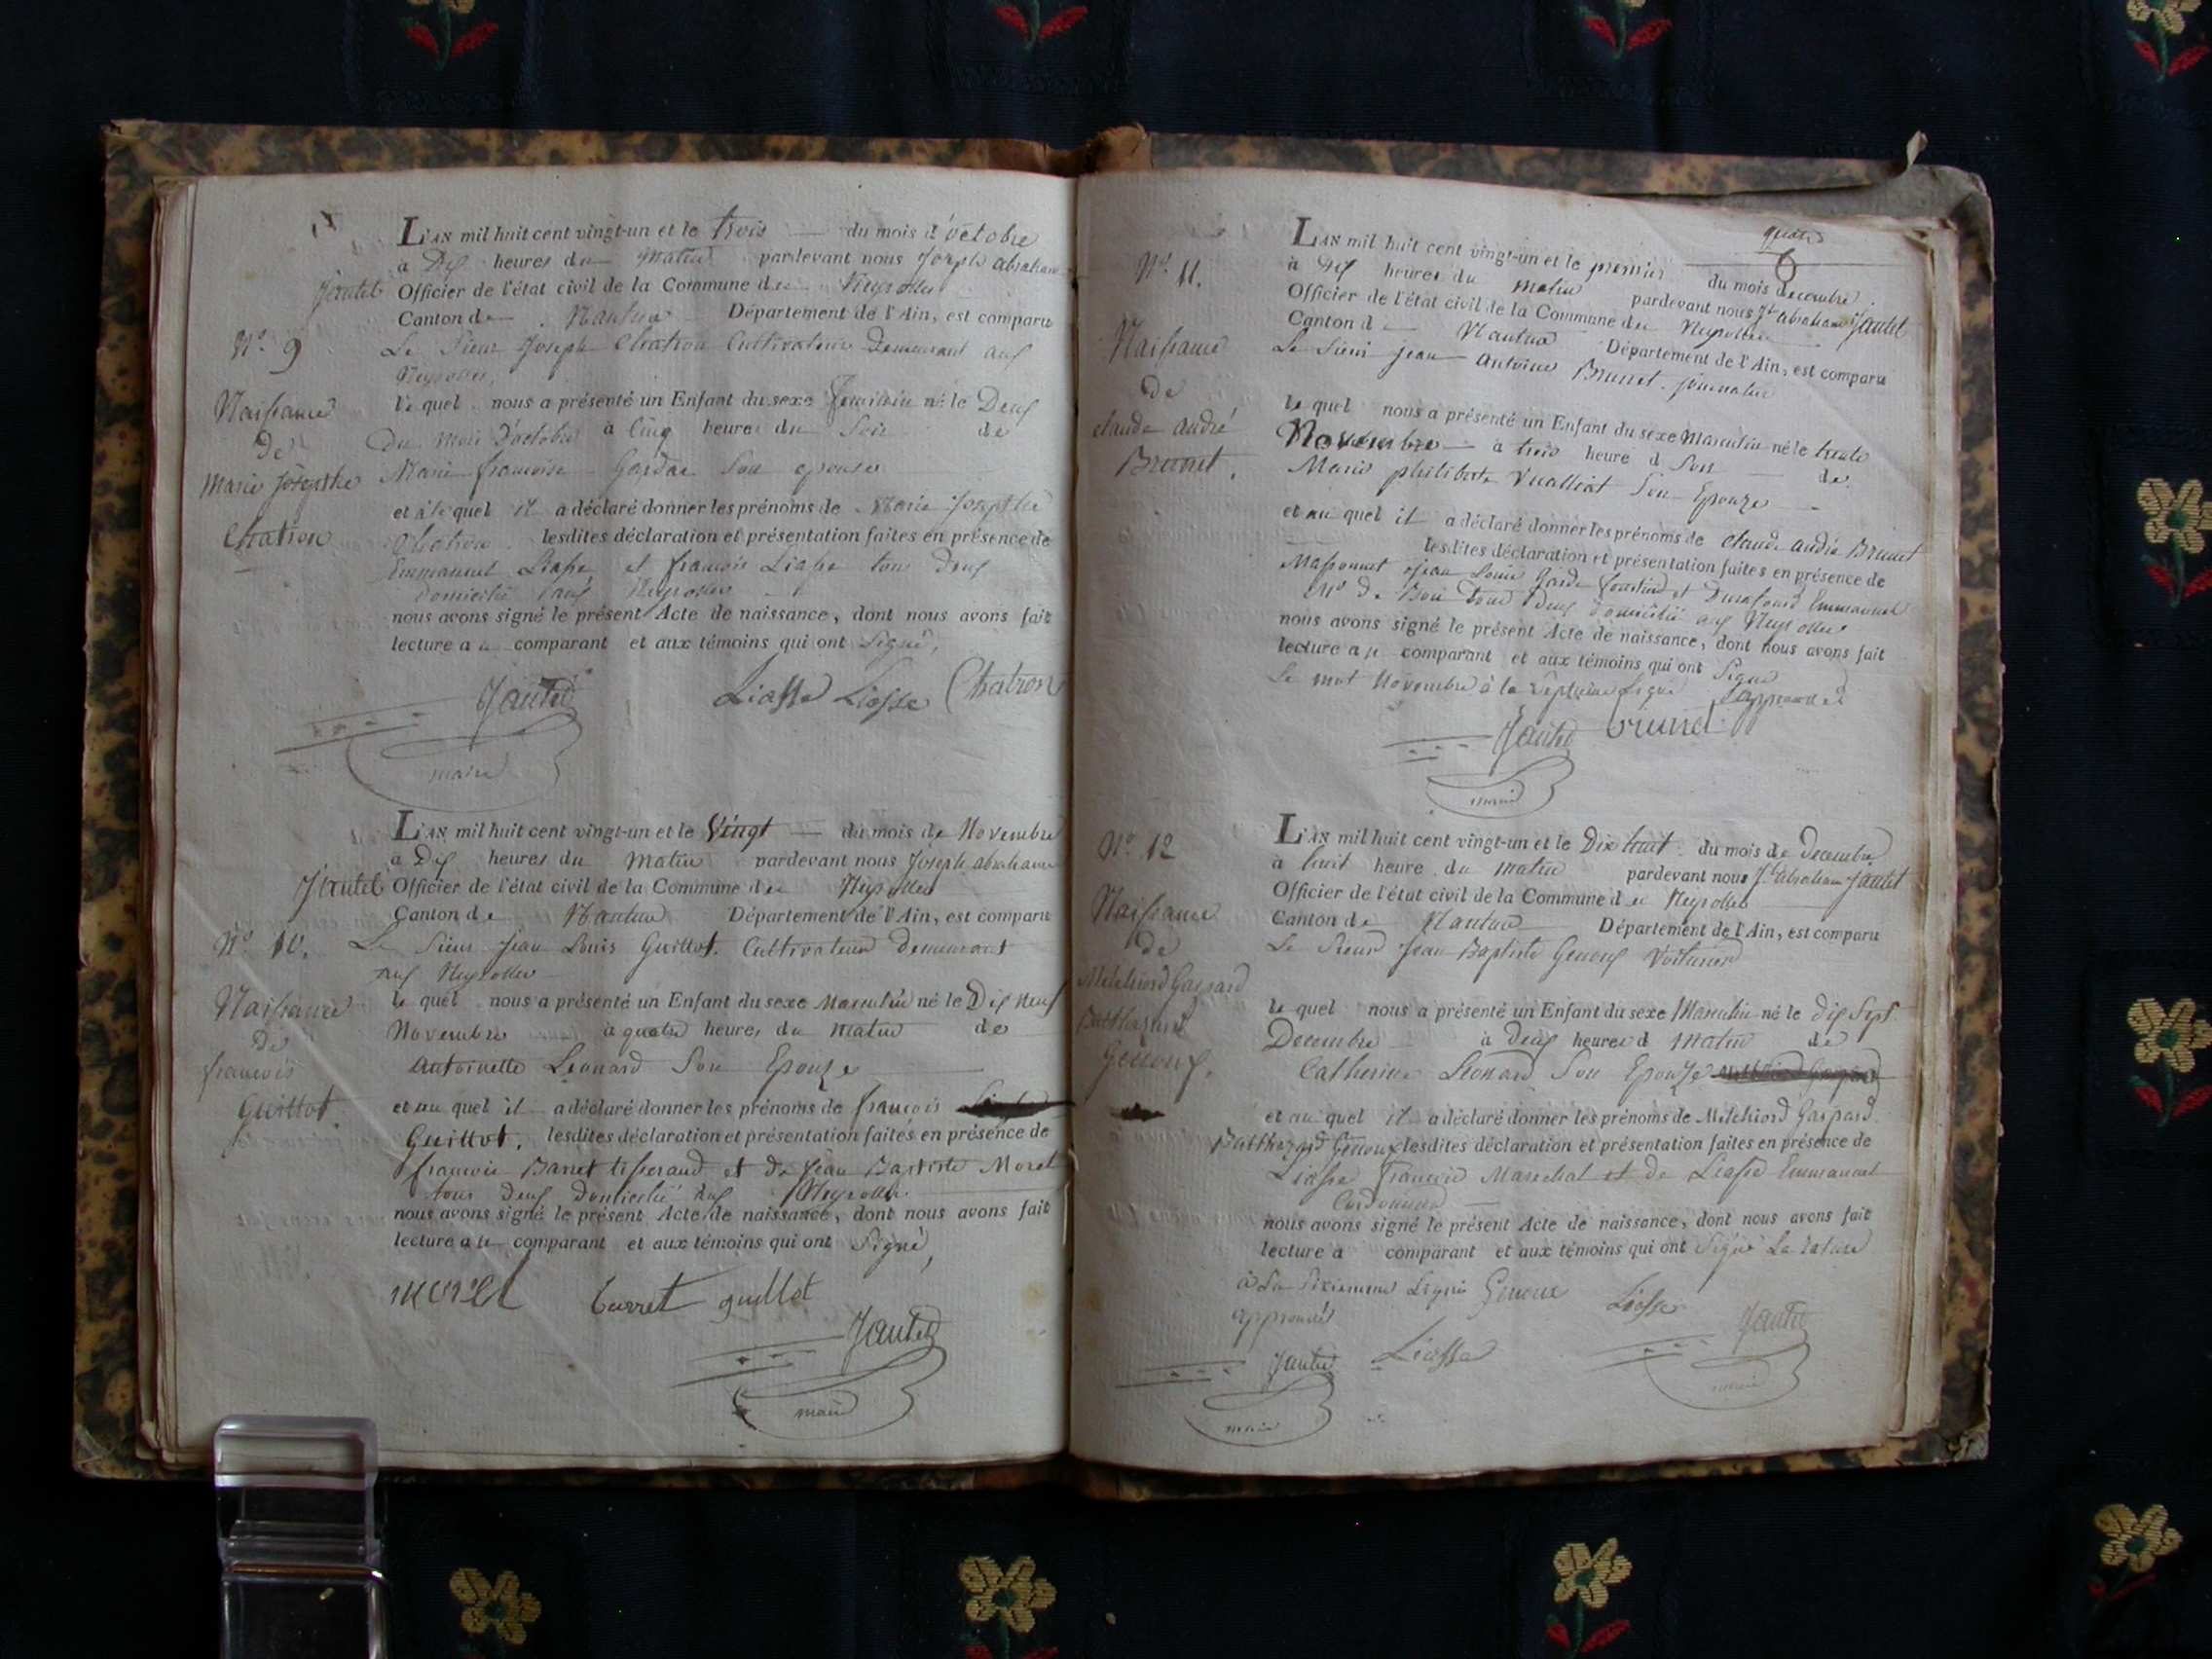 L'AN mil huit cent vingt-un et le trois du mois d'octobre
à Dix heures du Matin pardevant nous Joseph abraham
Jantet Officier de l'état civil de la Commune des Neyrolles
Canton de Nantua Département de l'Ain, est comparu
Le Sieur Joseph Chatron Cultivateur Demeurant aux
Neyrolles,
le quel nous a présenté un Enfant du sexe feminin né le Deux
Du mois D'octobre à Cinq heures du Soir de
Marie françoise Son epouse
et à le quel il a déclaré donner les prénoms de Marie Josephte
Chatron lesdites déclaration et présentation faites en présence de
Emmanuel Liasse et françois Liasse tous deux
domicilié aux Neyrolles
nous avons signé le présent Acte de naissance, dont nous avons fait
lecture au comparant et aux témoins qui ont Signé,
N.º 9
Naissance
De
Marie Josephte
Chatron
Jantet Liasse Liasse Chatron
maire
L'AN mil huit cent vingt-un et le Vingt du mois de Novembre
à Dix heures du Matin pardevant nous Joseph abraham
Jantet Officier de l'état civil de la Commune des Neyrolles
Canton de Nantua Département de l'Ain, est comparu
Le Sieur Jean Louis Guillot. Cultivateur Demeurant
aux Neyrolles
le quel nous a présenté un Enfant du sexe Masculin né le Dix neuf
Novembre à quatre heures du Matin de
Antoinette Léonard Son Epouze
et au quel il a déclaré donner les prénoms de françois
Guillot. lesdites déclaration et présentation faites en présence de
françois Barret tisserand et de Jean Baptiste Morel
tous deux domicilié aux Neyrolles
nous avons signé le présent Acte de naissance, dont nous avons fait
lecture au comparant et aux témoins qui ont Signé,
N.º 10.
Naissance
De
françois
Guillot.
morel barret guillot
Jantet
maire
quatre
6
L'AN mil huit cent vingt-un et le premier du mois decembre
à Dix heures du matin pardevant nous Jh abraham Jantet
Officier de l'état civil de la Commune des Neyrolles
Canton de Nantua Département de l'Ain, est comparu
Le Sieur Jean Antoine Brunet journalier
le quel nous a présenté un Enfant du sexe Masculin né le trente
Novembre à trois heure d Soir de
Marie philiberte Son Epouze
et au quel il a déclaré donner les prénoms de Claude André Brunet
lesdites déclaration et présentation faites en présence de
Massonnet Jean Louis Garde forestier et Emmanuel
Md de Bois tous deux domicilié aux Neyrolles
nous avons signé le présent Acte de naissance, dont nous avons fait
lecture au comparant et aux témoins qui ont Signé
Le mot Novembre à la Septieme ligne approuvé
N.º 11.
Naissance
de
Claude André
Brunet.
Jantet brunet
maire
L'AN mil huit cent vingt-un et le Dix huit du mois de decembre
à huit heure du matin pardevant nous Jh abraham Jantet
Officier de l'état civil de la Commune des Neyrolles
Canton de Nantua Département de l'Ain, est comparu
Le Sieur Jean Baptiste Genoux Voiturier
le quel nous a présenté un Enfant du sexe Masculin né le dix Sept
Decembre à Deux heures d Matin de
Catherine Léonard Son Epouze
et au quel il a déclaré donner les prénoms de Melchiord Gaspard
Batthazard Genoux lesdites déclaration et présentation faites en présence de
Liasse François Marechal et de Liasse Emmanuel
Cordonnier
nous avons signé le présent Acte de naissance, dont nous avons fait
lecture a comparant et aux témoins qui ont Signé La rature
à La Sixieme Ligne Genoux Liasse
approuvé Jantet
N.º 12
Naissance
de
Melchiord Gaspard
Batthazard
Genoux.
Jantet Liasse
maire maire